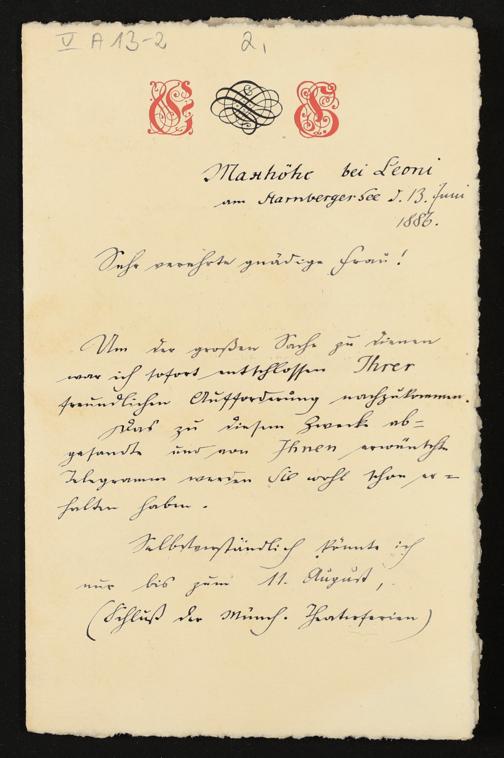 V A 13-2 2,
Maxhöhe bei Leoni
am Starnberger See d. 13. Juni
1886.
Sehr verehrte gnädige Frau!
Um der großen Sache zu dienen
war ich sofort entschlossen Ihrer
freundlichen Aufforderung nachzukommen.
Das zu diesem Zweck ab=
gesandte und von Ihnen erwünschte
Telegramm werden Sie wohl schon er=
halten haben.
Selbstverständlich könnte ich
nur bis zum 11. August,
(Schluß der Münch. Theaterferien)